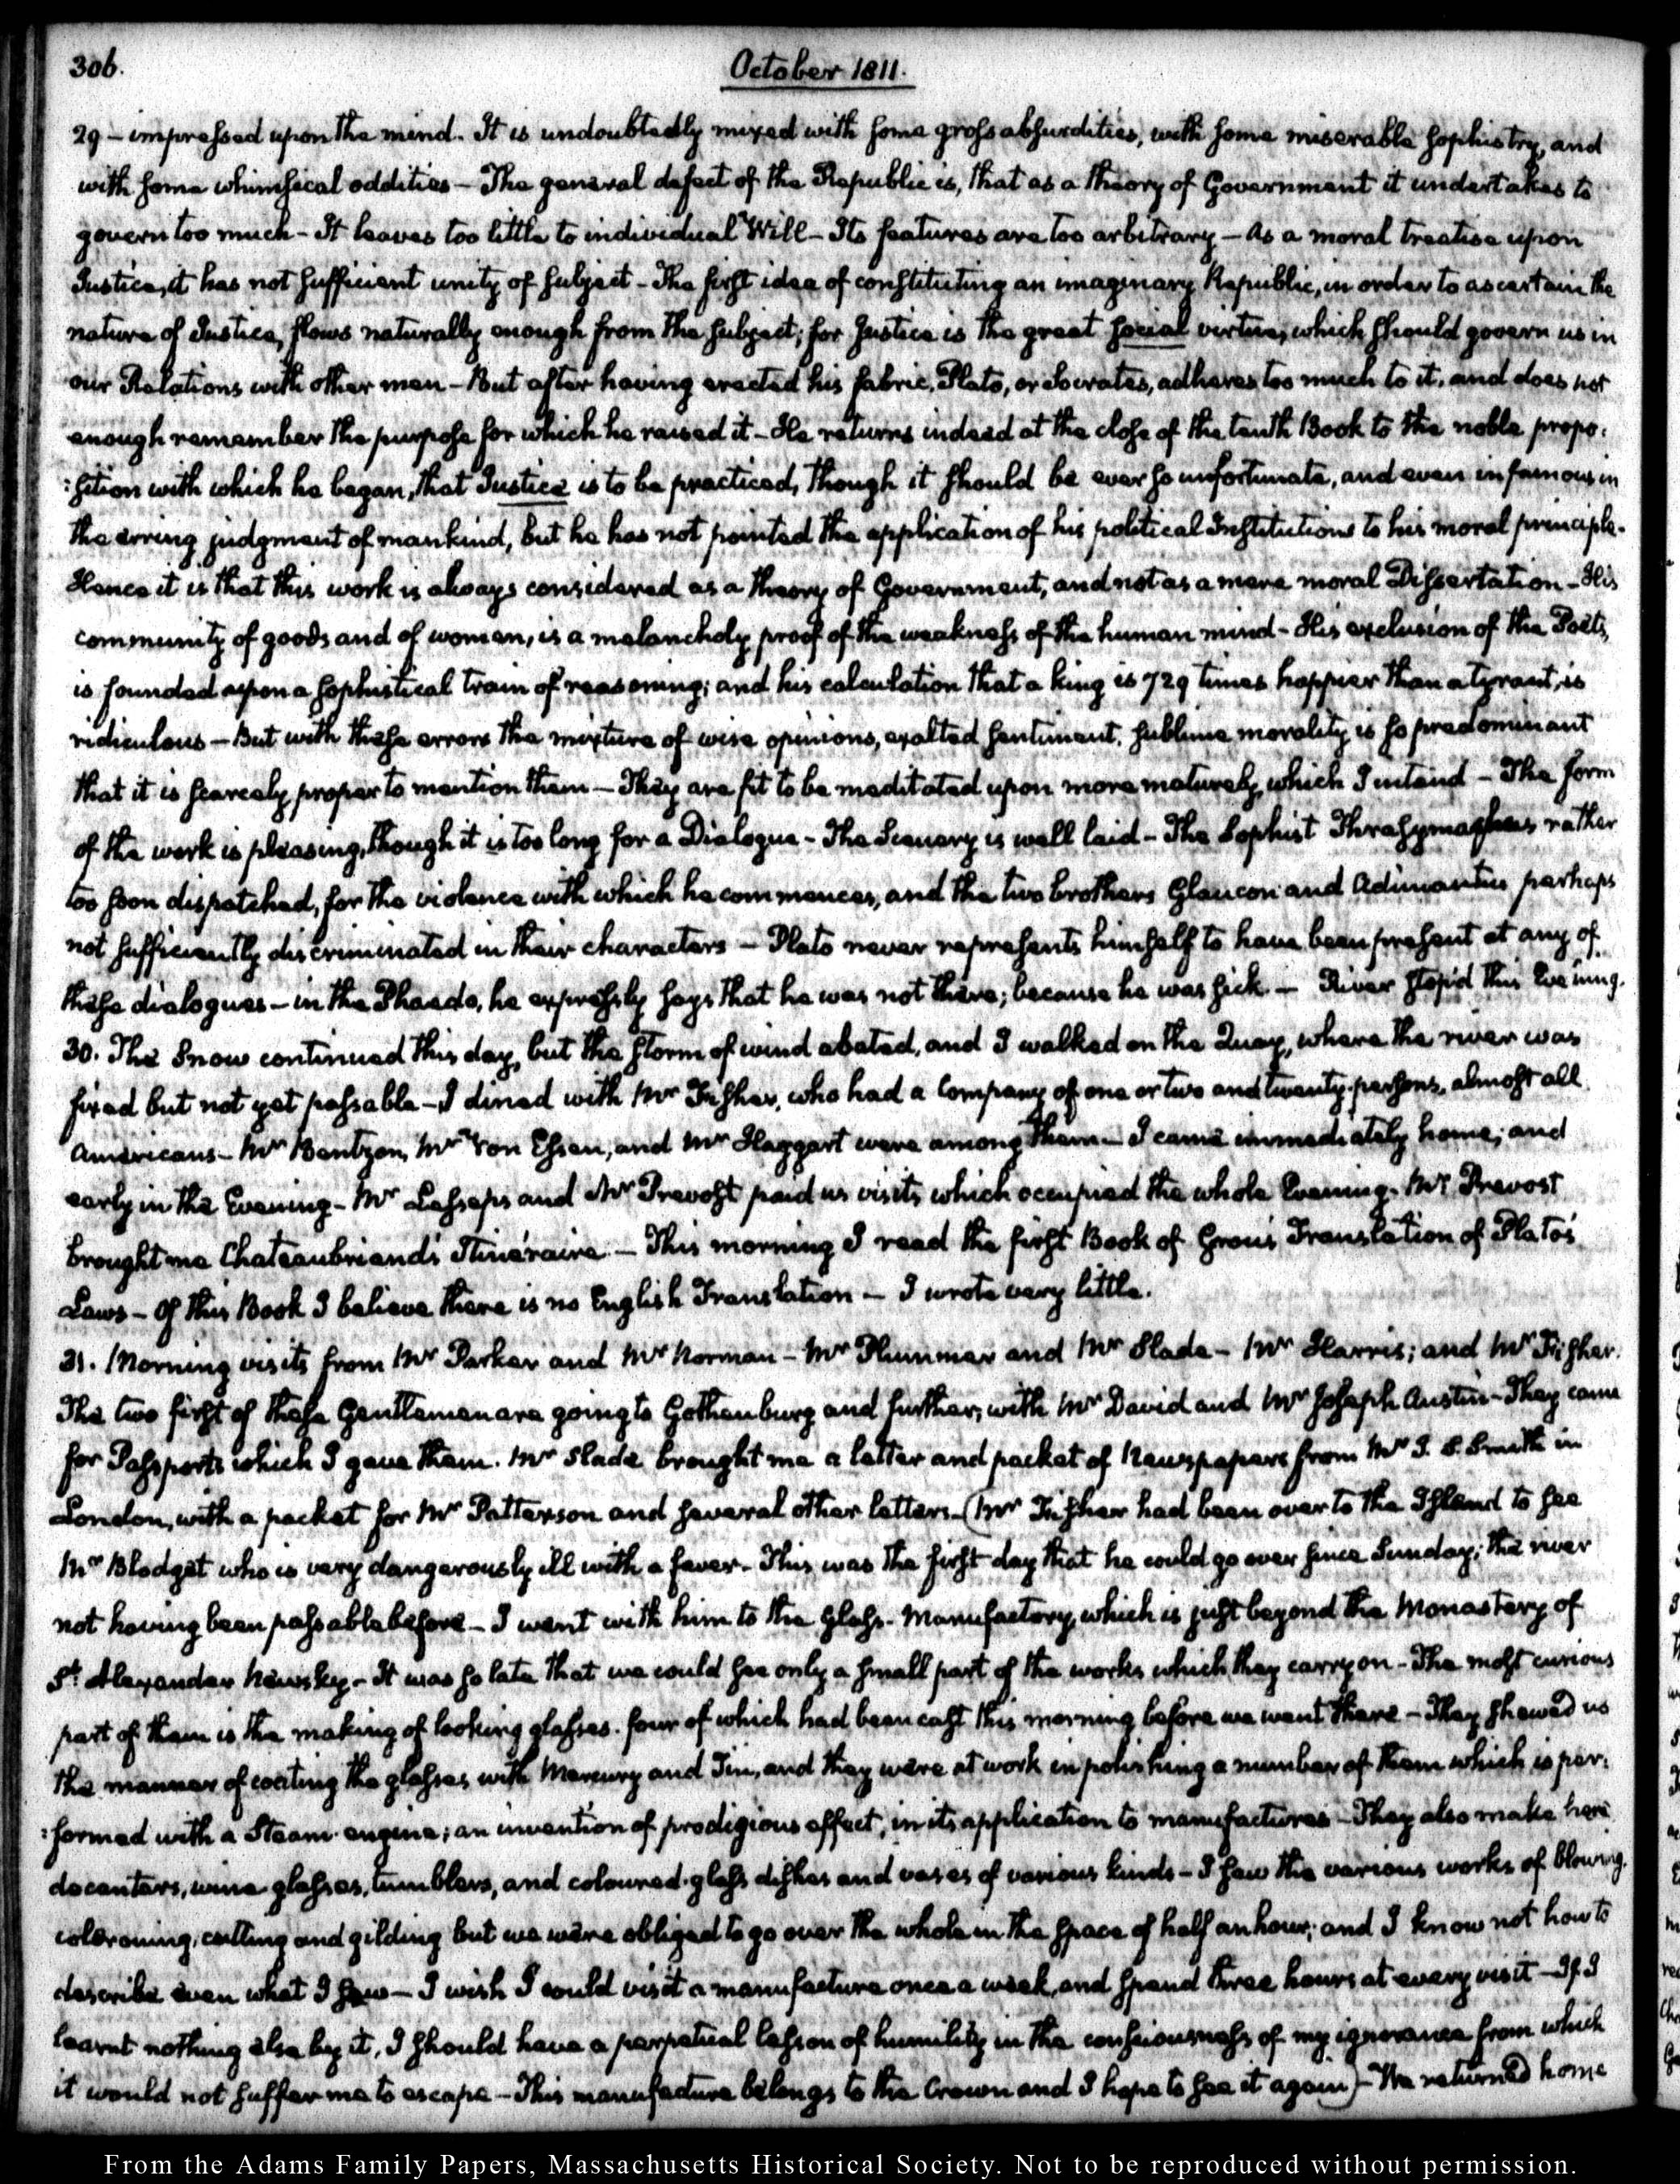 306.
October 1811.
29 – impressed upon the mind. It is undoubtedly mixed with some gross absurdities, with some miserable sophistry, and
with some whimsical oddities – The general defect of the Republic is, that as a theory of Government it undertakes to
govern too much – It leaves too little to individual Will – Its features are too arbitrary – As a moral treatise upon
Justice, it has not sufficient unity of subject – The first idea of constituting an imaginary Republic, in order to ascertain the
nature of Justice, flows naturally enough from the subject; for Justice is the great social virtue, which should govern us in
our Relations with other men – But after having erected his fabric, Plato, or Socrates, adheres too much to it, and does not
enough remember the purpose for which he raised it – He returns indeed at the close of the tenth Book to the noble propo:
:sition with which he began, that Justice is to be practiced, though it should be ever so unfortunate, and even infamous in
the erring judgment of mankind, but he has not pointed the application of his political Institutions to his moral principle.
Hence it is that this work is always considered as a theory of Government, and not as a mere moral Dissertation – His
community of goods and of women, is a melancholy proof of the weakness of the human mind – His exclusion of the Poets,
is founded upon a sophistical train of reasoning; and his calculation that a king is 729 times happier than a tyrant, is
ridiculous – But with these errors the mixture of wise opinions, exalted sentiment, sublime morality is so predominant
that it is scarcely proper to mention them – They are fit to be meditated upon more maturely, which I intend – The form
of the work is pleasing, though it is too long for a Dialogue – The Scenary is well laid – The Sophist Thrasymachus rather
too soon dispatched, for the violence with which he commences, and the two brothers Glaucon and Adimantus perhaps
not sufficiently discriminated in their characters – Plato never represents himself to have been present at any of
these dialogues – in the Phaedo, he expressly says that he was not there; because he was sick. – River stop'd this Evening.
30. The Snow continued this day, but the storm of wind abated, and I walked on the Quay, where the river was
fixed but not yet passable – I dined with Mr Fisher, who had a Company of one or two and twenty persons, almost all
Americans – Mr Bentzon, Mr Von Essen, and Mr Haggart were among them – I came immediately home; and
early in the Evening – Mr Lesseps and Mr Prevost paid us visits which occupied the whole Evening. Mr Prevost
brought me Chateaubriand's Itinéraire. – This morning I read the first Book of Grou's Translation of Plato's
Laws – Of this Book I believe there is no English Translation – I wrote very little.
31. Morning visits from Mr Parker and Mr Norman – Mr Plummer and Mr Slade – Mr Harris; and Mr Fisher.
The two first of these Gentlemen are going to Gothenburg and further, with Mr David and Mr Joseph Austin – They came
for Passports which I gave them. Mr Slade brought me a letter and packet of Newspapers from Mr J. S. Smith in
London, with a packet for Mr Patterson and several other letters – (Mr Fisher had been over to the Island to see
Mr Blodget who is very dangerously ill with a fever – This was the first day that he could go over since Sunday; the river
not having been passable before – I went with him to the Glass-Manufactory, which is just beyond the Monastery of
St Alexander Newskey – It was so late that we could see only a small part of the works which they carry on – The most curious
part of them is the making of looking glasses. four of which had been cast this morning before we went there – They shewed us
the manner of coating the glasses with Mercury and Tin, and they were at work in polishing a number of them which is per:
:formed with a Steam-engine; an invention of prodigious effect, in its application to manufactures – They also make here
decanters, wine-glasses, tumblers, and coloured-glass dishes and vases of various kinds – I saw the various works of blowing,
colorouing, cutting and gilding but we were obliged to go over the whole in the space of half an hour; and I know not how to
describe even what I saw – I wish I could visit a manufacture once a week, and spend three hours at every visit – If I
learnt nothing else by it, I should have a perpetual lesson of humility in the consciousness of my ignorance from which
it would not suffer me to escape – This manufacture belongs to the Crown and I hope to see it again) – We returned home
From the Adams Family Papers, Massachusetts Historical Society. Not to be reproduced without permission.